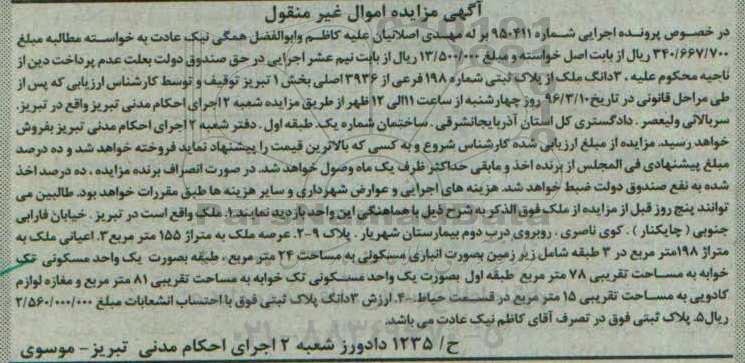 آگهی مزایده اموال غیر منقول
در خصوص پرونده اجرایی شماره ۹۵۰۴۱۱ بر له مهدی اصلانیان علیه کاظم وابوالفضل همگی نیک عادت به خواسته مطالبه مبلغ
۳۴۰/۶۶۷/۷۰۰ ریال از بابت اصل خواسته و مبلغ ۱۳/۵۰۰/۰۰۰ ریال از بابت نیم عشر اجرایی در حق صندوق دولت بعلت عدم پرداخت دین از
ناحیه محکوم علیه ، ۳دانگ ملک از پلاک ثبتی شماره ۱۹۸ فرعی از ۳۹۳۶ اصلی بخش ۱ تبریز توقیف و توسط کارشناس ارزیابی که پس از
طی مراحل قانونی در تاریخ ۹۶/۳/۱۰ روز چهارشنبه از ساعت ۱۱الی ۱۲ ظهر از طریق مزایده شعبه ۲ اجرای احکام مدنی تبریز واقع در تبریز.
سربالائی ولیعصر . دادگستری کل استان آذربایجانشرقی . ساختمان شماره یک. طبقه اول . دفتر شعبه ۲ اجرای احکام مدنی تبریز بفروش
خواهد رسید. مزایده از مبلغ ارزیابی شده کارشناس شروع و به کسی که بالاترین قیمت را پیشنهاد نماید فروخته خواهد شد و ده درصد
مبلغ پیشنهادی فی المجلس از برنده اخذ و مابقی حداکثر ظرف یک ماه وصول خواهد شد. در صورت انصراف برنده مزایده ، ده درصد اخذ
شده به نفع صندوق دولت ضبط خواهد شد. هزینه های اجرایی و عوارض شهرداری و سایر هزینه ها طبق مقررات خواهد بود. طالبین می
توانند پنج روز قبل از مزایده از ملک فوق الذکر به شرح ذیل با هماهنگی این واحد بازدید نمایند ۱. ملک واقع است در تبریز . خیابان فارابی
جنوبی ( چایکنار ) . کوی ناصری . روبروی درب دوم بیمارستان شهریار . پلاک ۹-۲. عرصه ملک به متراژ ۱۵۵ متر مربع ۳. اعیانی ملک به
متراژ ۱۹۸متر مربع در ۳ طبقه شامل زیر زمین بصورت انباری مسکونی به مساحت ۲۴ متر مربع ، طبقه بصورت یک واحد مسکونی تک
خوابه به مساحت تقریبی ۷۸ متر مربع طبقه اول بصورت یک واحد مسکونی تک خوابه به مساحت تقریبی ۸۱ متر مربع و مغازه لوازم
کادویی به مساحت تقریبی ۱۵ متر مربع در قسمت حیاط ۴۰. ارزش ۳دانگ پلاک ثبتی فوق با احتساب انشعابات مبلغ ۲/۵۶۰/۰۰۰/۰۰۰
ریال ۵. پلاک ثبتی فوق در تصرف آقای کاظم نیک عادت می باشد.
ح/ ۱۲۳۵ دادورز شعبه ۲ اجرای احکام مدنی تبریز - موسوی